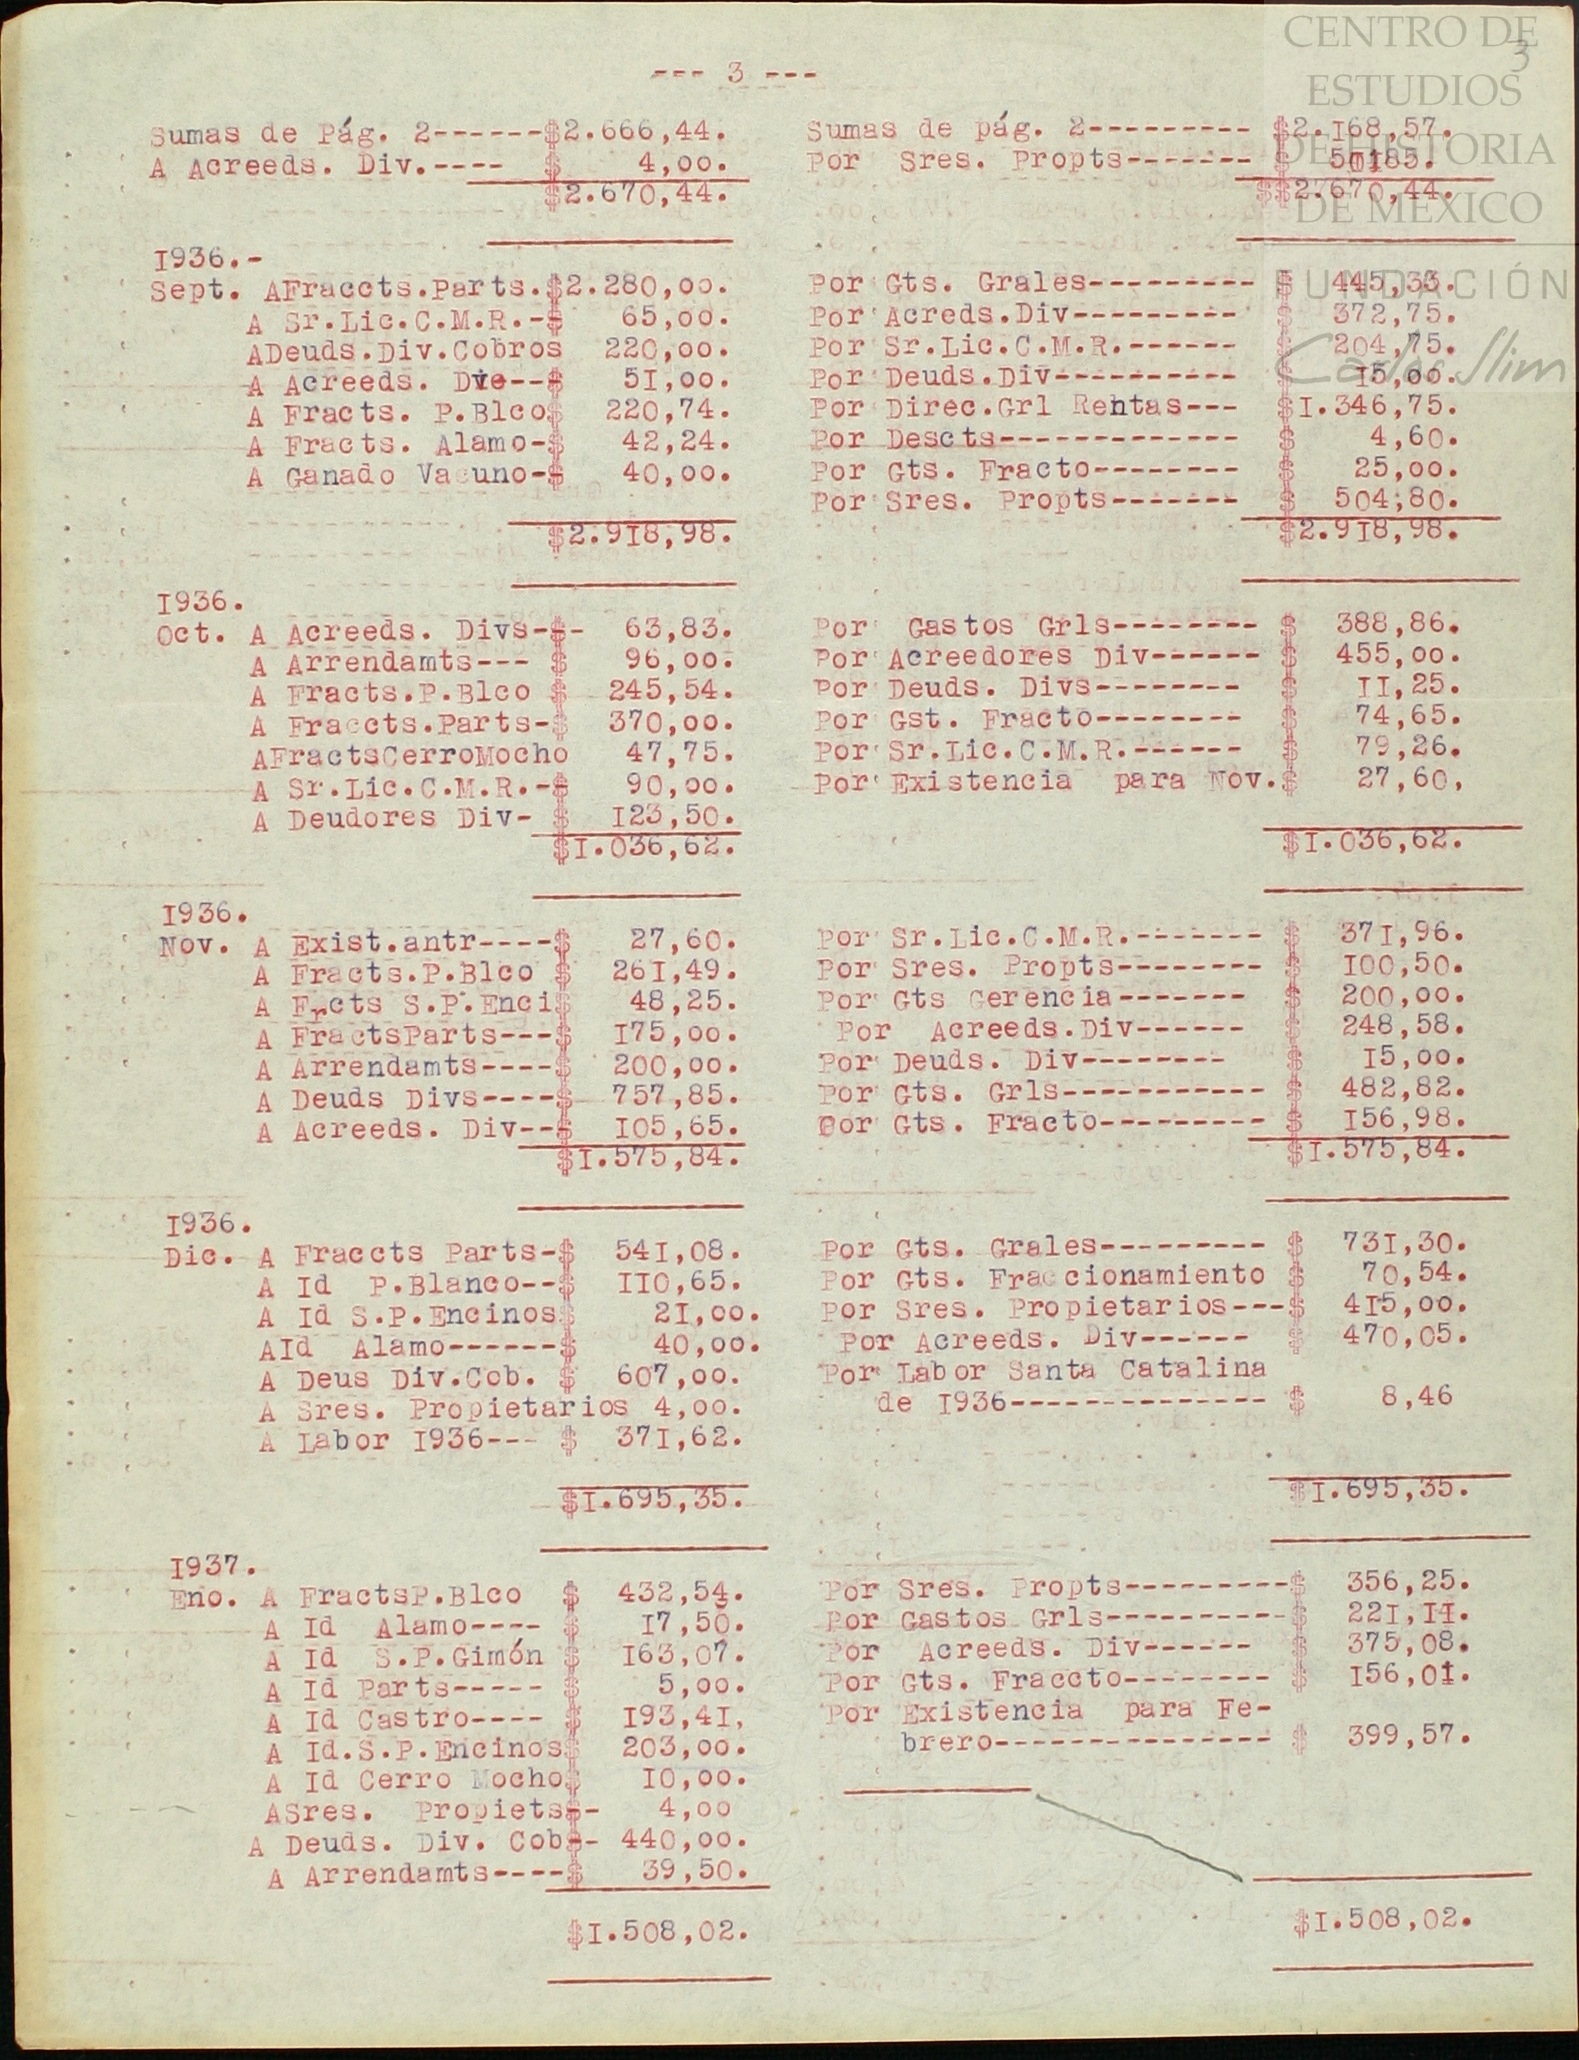 CENTRO DE
ESTUDIOS
DE HISTORIA
DE MEXICO
FUNDACIÓN
Carlos Slim
3
--- 3 ---
Sumas de Pág. 2------$2.666,44.
A Acreeds. Div.---- $ 4,00.
$2.670,44.
1936.-
Sept. AFraccts.Parts.$2.280,00.
A Sr.Lic.C.M.R.-$ 65,00.
ADeuds.Div.Cobros 220,00.
A Acreeds. Div--$ 51,00.
A Fracts. P.Blco$ 220,74.
A Fracts. Alamo-$ 42,24.
A Ganado Vacuno-$ 40,00.
$2.918,98.
1936.
Oct. A Acreeds. Divs-$- 63,83.
A Arrendamts--- $ 96,00.
A Fracts.P.Blco $ 245,54.
A Fraccts.Parts-$ 370,00.
AFractsCerroMocho 47,75.
A Sr.Lic.C.M.R.-$ 90,00.
A Deudores Div- $ 123,50.
$1.036,62.
1936.
Nov. A Exist.antr----$ 27,60.
A Fracts.P.Blco $ 261,49.
A Frcts S.P.Enci$ 48,25.
A FractsParts---$ 175,00.
A Arrendamts----$ 200,00.
A Deuds Divs----$ 757,85.
A Acreeds. Div--$ 105,65.
$1.575,84.
1936.
Dic. A Fraccts Parts-$ 541,08.
A Id P.Blanco--$ 110,65.
A Id S.P.Encinos$ 21,00.
AId Alamo------$ 40,00.
A Deus Div.Cob. $ 607,00.
A Sres. Propietarios 4,00.
A Labor 1936--- $ 371,62.
$1.695,35.
1937.
Eno. A FractsP.Blco $ 432,54.
A Id Alamo---- $ 17,50.
A Id S.P.Gimón $ 163,07.
A Id Parts----- $ 5,00.
A Id Castro---- $ 193,41,
A Id.S.P.Encinos$ 203,00.
A Id Cerro Mocho$ 10,00.
ASres. Propiets$- 4,00
A Deuds. Div. Cob$- 440,00.
A Arrendamts----$ 39,50.
$1.508,02.
Sumas de pág. 2--------- $2.168,57.
Por Sres. Propts------- $
$$2.670,44.
Por Gts. Grales--------- $ 445,33.
Por Acreds.Div--------- $ 372,75.
Por Sr.Lic.C.M.R.------ $ 204,75.
Por Deuds.Div---------- $ 15,00.
Por Direc.Grl Rentas--- $1.346,75.
Por Descts------------- $ 4,60.
Por Gts. Fracto-------- $ 25,00.
Por Sres. Propts------- $ 504,80.
$2.918,98.
Por Gastos Grls-------- $ 388,86.
Por Acreedores Div------ $ 455,00.
Por Deuds. Divs-------- $ 11,25.
Por Gst. Fracto-------- $ 74,65.
Por Sr.Lic.C.M.R.------ $ 79,26.
Por Existencia para Nov.$ 27,60,
$1.036,62.
Por Sr.Lic.C.M.R.------- $ 371,96.
Por Sres. Propts-------- $ 100,50.
Por Gts Gerencia------- $ 200,00.
Por Acreeds.Div------ $ 248,58.
Por Deuds. Div-------- $ 15,00.
Por Gts. Grls----------- $ 482,82.
Por Gts. Fracto--------- $ 156,98.
$1.575,84.
Por Gts. Grales--------- $ 731,30.
Por Gts. Fraccionamiento $ 70,54.
Por Sres. Propietarios---$ 415,00.
Por Acreeds. Div------ $ 470,05.
Por Labor Santa Catalina
de 1936-------------- $ 8,46
$1.695,35.
Por Sres. Propts---------$ 356,25.
Por Gastos Grls----------$ 221,11.
Por Acreeds. Div------ $ 375,08.
Por Gts. Fraccto-------- $ 156,01.
Por Existencia para Fe-
brero--------------- $ 399,57.
$1.508,02.